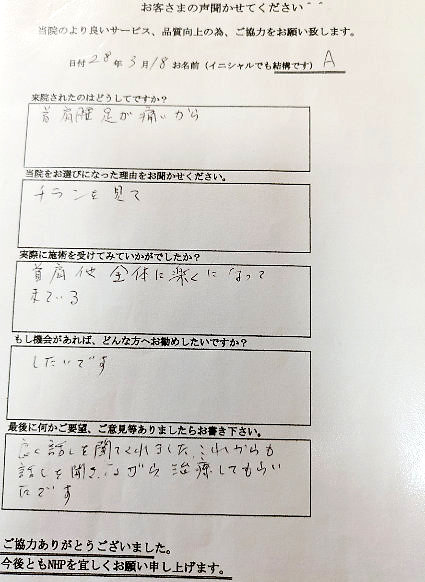 お客さまの声聞かせてください＾＾
当院のより良いサービス、品質向上の為、ご協力をお願い致します。
日付 28 年 3 月/8 お名前（イニシャルでも結構です） A
来院されたのはどうしてですか？
首肩腰足が痛いから
当院をお選びになった理由をお聞かせください。
チランを見て
実際に施術を受けてみていかがでしたか？
首肩他全体に楽くになって
来ている
もし機会があれば、どんな方へお勧めしたいですか？
したいです
最後に何かご要望、ご意見等ありましたらお書き下さい。
良く話しを聞てくれました これからも
話しを聞きながら治療してもらい
たです
ご協力ありがとうございました。
今後ともNHPを宜しくお願い申し上げます。